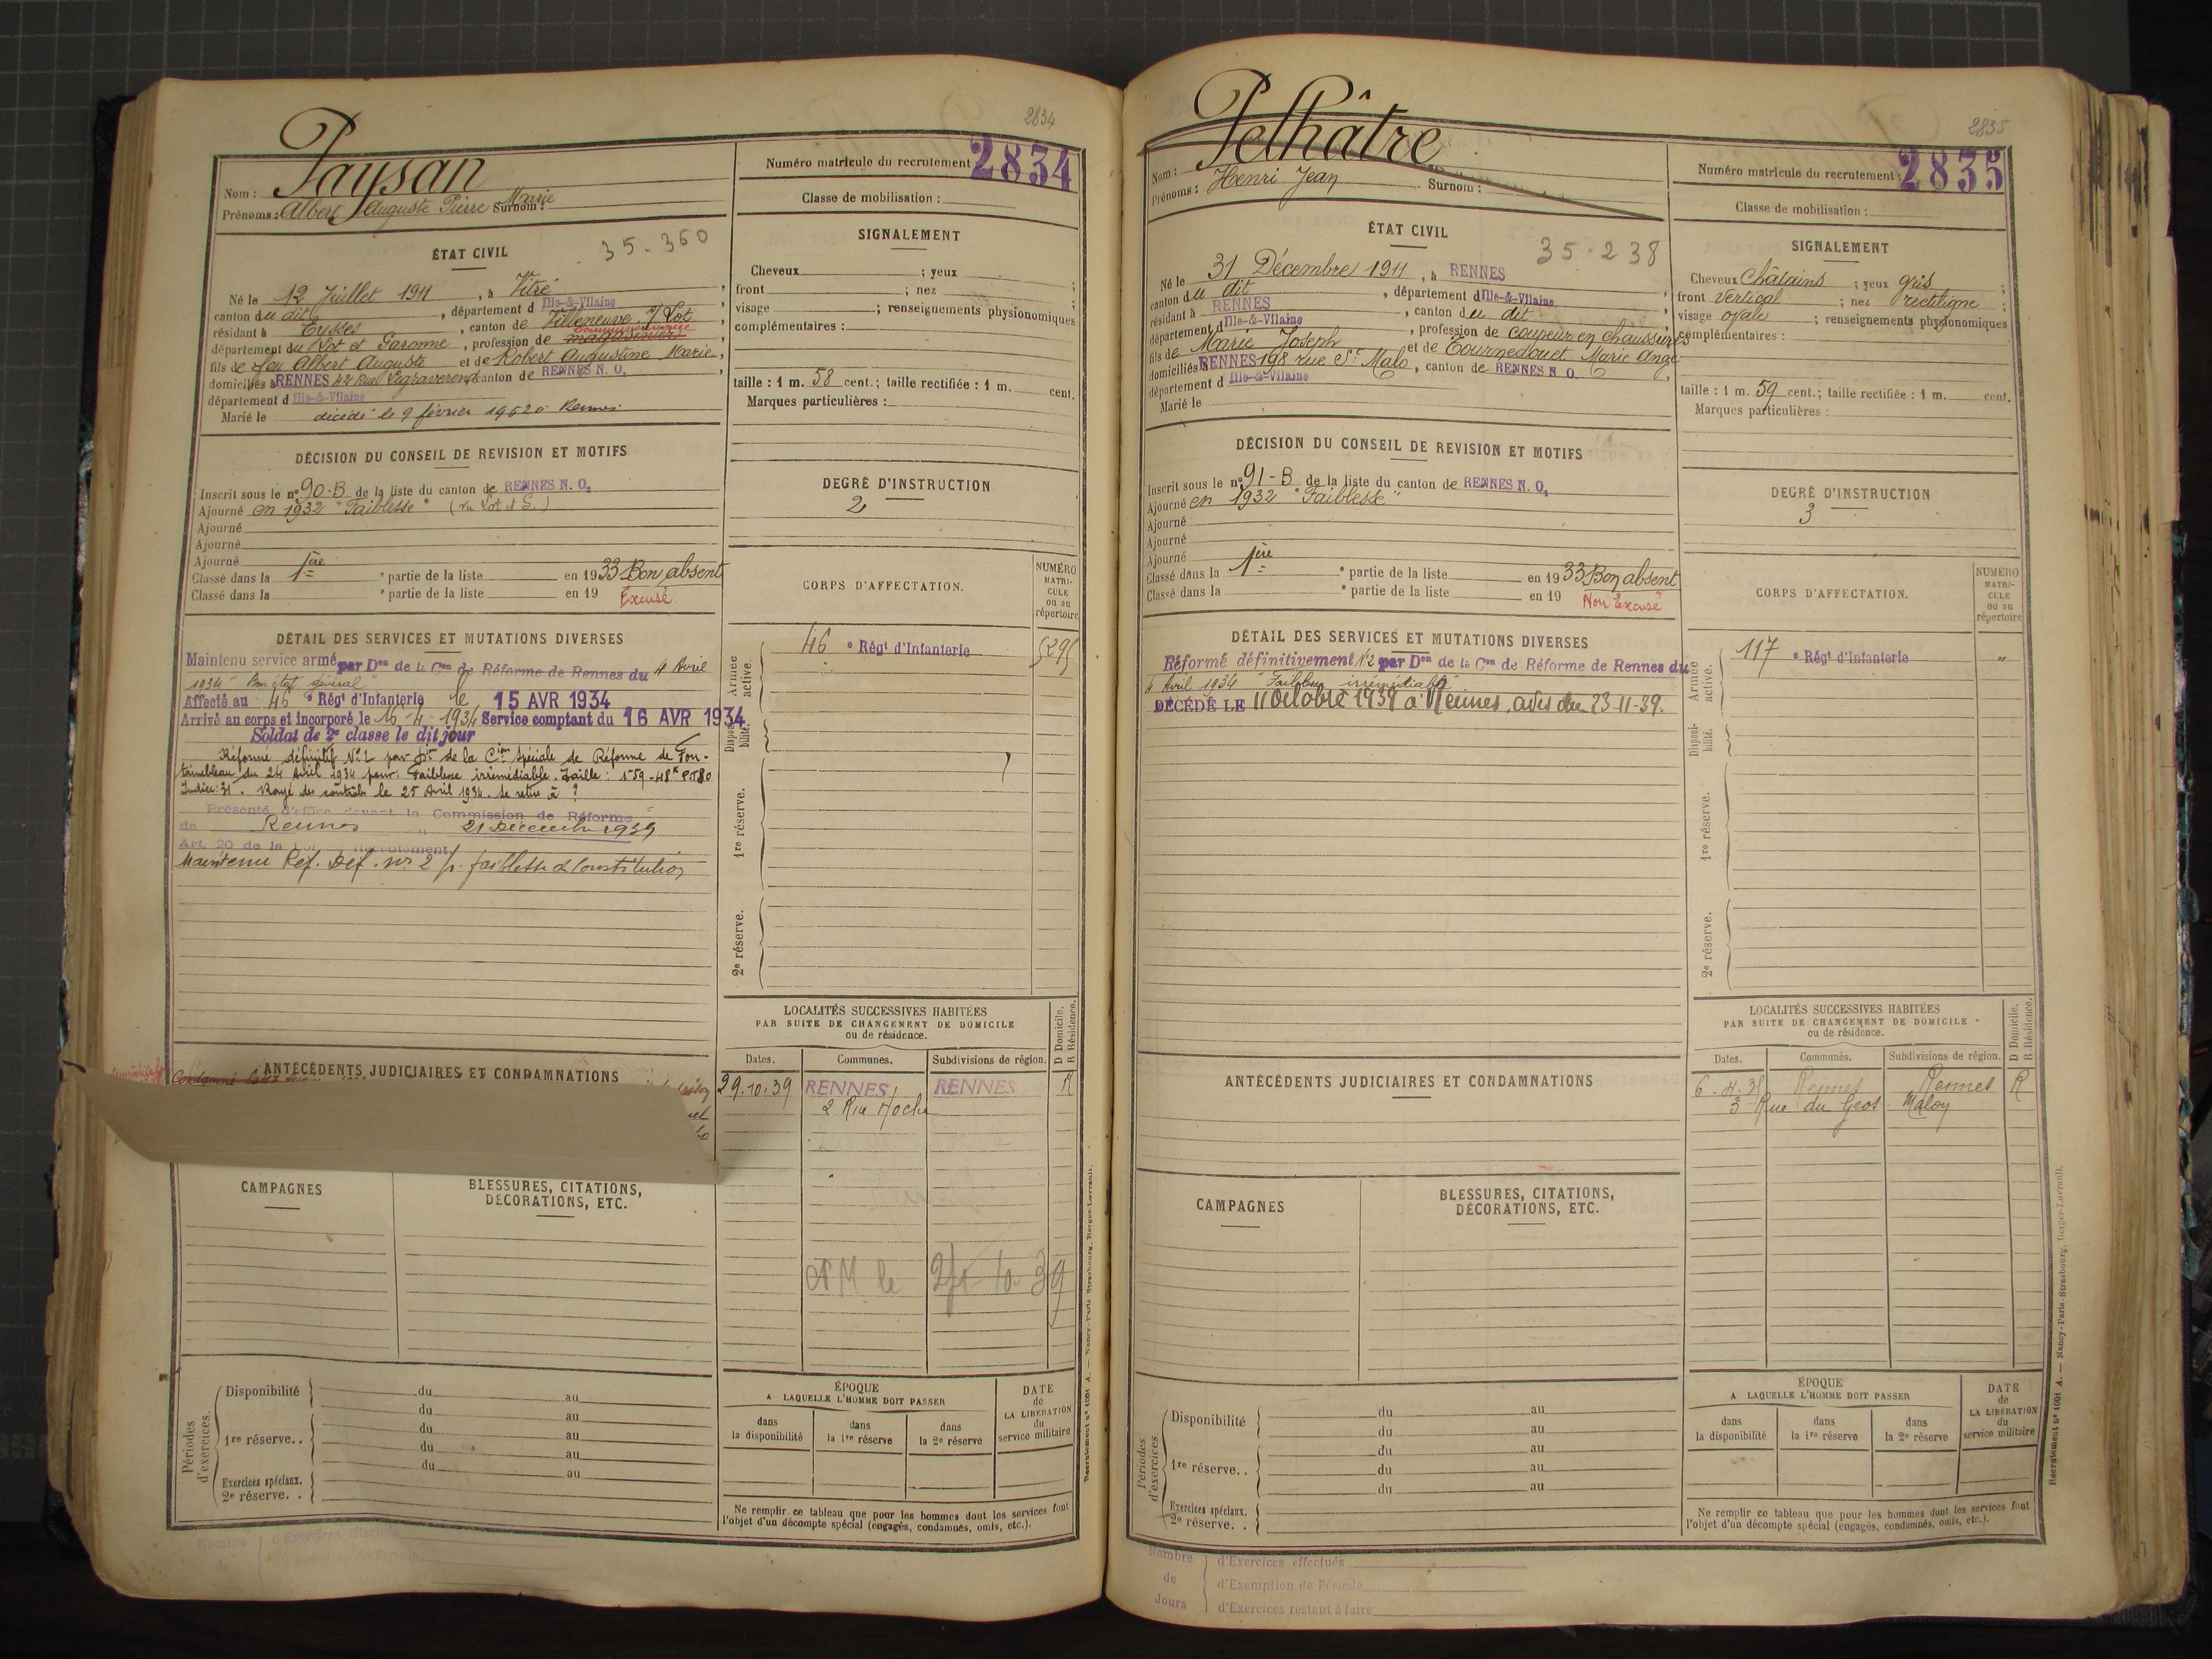 2834
Paysan
Numéro matricule du recrutement 2834
Nom :
Prénoms : Albert Auguste Pierre Marie Surnom :
Classe de mobilisation :
35-360
ÉTAT CIVIL
Né le 12 Juillet 1911, à Vitré
canton du dit, département d Ille-&-Vilaine
résidant à Eysses, canton de Villeneuve s/ Lot
département du Lot et Garonne, profession de
fils de feu Albert Auguste et de Robert Augustine Marie,
domiciliés à RENNES 42 Rue Legraverend canton de RENNES N. O.
département d Ille-&-Vilaine
Marié le
décédé le 9 février 1952 à Rennes
SIGNALEMENT
Cheveux ; yeux ;
front ; nez ;
visage ; renseignements physionomiques
complémentaires :
taille : 1 m. 58 cent.; taille rectifiée : 1 m. cent.
Marques particulières :
DÉCISION DU CONSEIL DE REVISION ET MOTIFS
Inscrit sous le n° 90-B de la liste du canton de RENNES N. O.
Ajourné en 1932 "Faiblesse" (vu Lot & G.)
Ajourné
Ajourné
Ajourné
Classé dans la 1ère partie de la liste en 1933 Bon absent
Classé dans la ° partie de la liste en 19 Excusé
DEGRÉ D'INSTRUCTION
2
CORPS D'AFFECTATION.
NUMÉRO MATRICULE ou au répertoire
Armée active.
46 ° Régt d'Infanterie
Disponibilité.
1re réserve.
2e réserve.
DÉTAIL DES SERVICES ET MUTATIONS DIVERSES
Maintenu service armé par Don de la Con de Réforme de Rennes du 4 Avril
1934 "Bon état général"
Affecté au 46 ° Régt d'Infanterie le 15 AVR 1934
Arrivé au corps et incorporé le 16-4-1934 Service comptant du 16 AVR 1934
Soldat de 2e classe le dit jour
Réformé définitif N°2 par Don de la Cion Spéciale de Réforme de Fon-
tainebleau du 24 Avril 1934 pour: Faiblesse irrémédiable. Taille: 1m59 - 48k PT80
Indice: 31. Rayé des contrôles le 25 Avril 1934. Se retire à ?
Présenté d'office devant la Commission de Réforme
de Rennes 21 Décembre 1939
Art. 20 de la Loi Recrutement
Maintenu Réf. Déf. n° 2 p. faiblesse de Constitution
ANTÉCÉDENTS JUDICIAIRES ET CONDAMNATIONS
Condamné
CAMPAGNES
BLESSURES, CITATIONS, DÉCORATIONS, ETC.
LOCALITÉS SUCCESSIVES HABITÉES
PAR SUITE DE CHANGEMENT DE DOMICILE
ou de résidence.
D Domicile. R Résidence.
Dates. Communes. Subdivisions de région.
29.10.39 RENNES RENNES R
2 Rue Hoche
Périodes d'exercices.
Disponibilité du au
du au
1re réserve.. du au
du au
Exercices spéciaux. du au
2e réserve. .
ÉPOQUE
A LAQUELLE L'HOMME DOIT PASSER
dans la disponibilité
dans la 1re réserve
dans la 2e réserve
DATE de LA LIBÉRATION du service militaire
Ne remplir ce tableau que pour les hommes dont les services font
l'objet d'un décompte spécial (engagés, condamnés, omis, etc.).
Recrutement n° 1001 A. — Nancy-Paris-Strasbourg, Berger-Levrault.
Nombre
de
d'Exercices effectués
d'Exemption de Période
2835
Pelhâtre
Numéro matricule du recrutement : 2835
Nom :
Prénoms : Henri Jean Surnom :
Classe de mobilisation :
35-238
ÉTAT CIVIL
Né le 31 Décembre 1911, à RENNES
canton du dit, département d Ille-&-Vilaine
résidant à RENNES, canton du dit
département d Ille-&-Vilaine, profession de coupeur en chaussures
fils de Marie Joseph et de Tournedouet Marie Ange
domiciliés à RENNES 198 rue St Malo, canton de RENNES N O.
département d Ille-&-Vilaine
Marié le
SIGNALEMENT
Cheveux châtains ; yeux gris ;
front vertical ; nez rectiligne ;
visage ovale ; renseignements physionomiques
complémentaires :
taille : 1 m. 59 cent.; taille rectifiée : 1 m. cent.
Marques particulières :
DÉCISION DU CONSEIL DE REVISION ET MOTIFS
Inscrit sous le n° 91-B de la liste du canton de RENNES N. O.
Ajourné en 1932 "Faiblesse"
Ajourné
Ajourné
Ajourné
Classé dans la 1ère partie de la liste en 1933 Bon absent
Classé dans la ° partie de la liste en 19 Non Excusé
DEGRÉ D'INSTRUCTION
3
CORPS D'AFFECTATION.
NUMÉRO MATRICULE ou au répertoire
Armée active.
117 ° Régt d'Infanterie "
Disponibilité.
1re réserve.
2e réserve.
DÉTAIL DES SERVICES ET MUTATIONS DIVERSES
Réformé définitivement N°2 par Don de la Con de Réforme de Rennes du
4 Avril 1934 "Faiblesse irrémédiable"
DÉCÉDÉ LE 11 Octobre 1939 à Rennes, avis du 23-11-39.
ANTÉCÉDENTS JUDICIAIRES ET CONDAMNATIONS
CAMPAGNES
BLESSURES, CITATIONS, DÉCORATIONS, ETC.
LOCALITÉS SUCCESSIVES HABITÉES
PAR SUITE DE CHANGEMENT DE DOMICILE
ou de résidence.
D Domicile. R Résidence.
Dates. Communes. Subdivisions de région.
Rennes Rennes R
3 Rue du Gros Maloy
Périodes d'exercices.
Disponibilité du au
du au
1re réserve.. du au
du au
du au
Exercices spéciaux.
2e réserve. .
ÉPOQUE
A LAQUELLE L'HOMME DOIT PASSER
dans la disponibilité
dans la 1re réserve
dans la 2e réserve
DATE de LA LIBÉRATION du service militaire
Ne remplir ce tableau que pour les hommes dont les services font
l'objet d'un décompte spécial (engagés, condamnés, omis, etc.).
Recrutement n° 1001 A. — Nancy-Paris-Strasbourg, Berger-Levrault.
Nombre de Jours
d'Exercices effectués
d'Exemption de Période
d'Exercices restant à faire